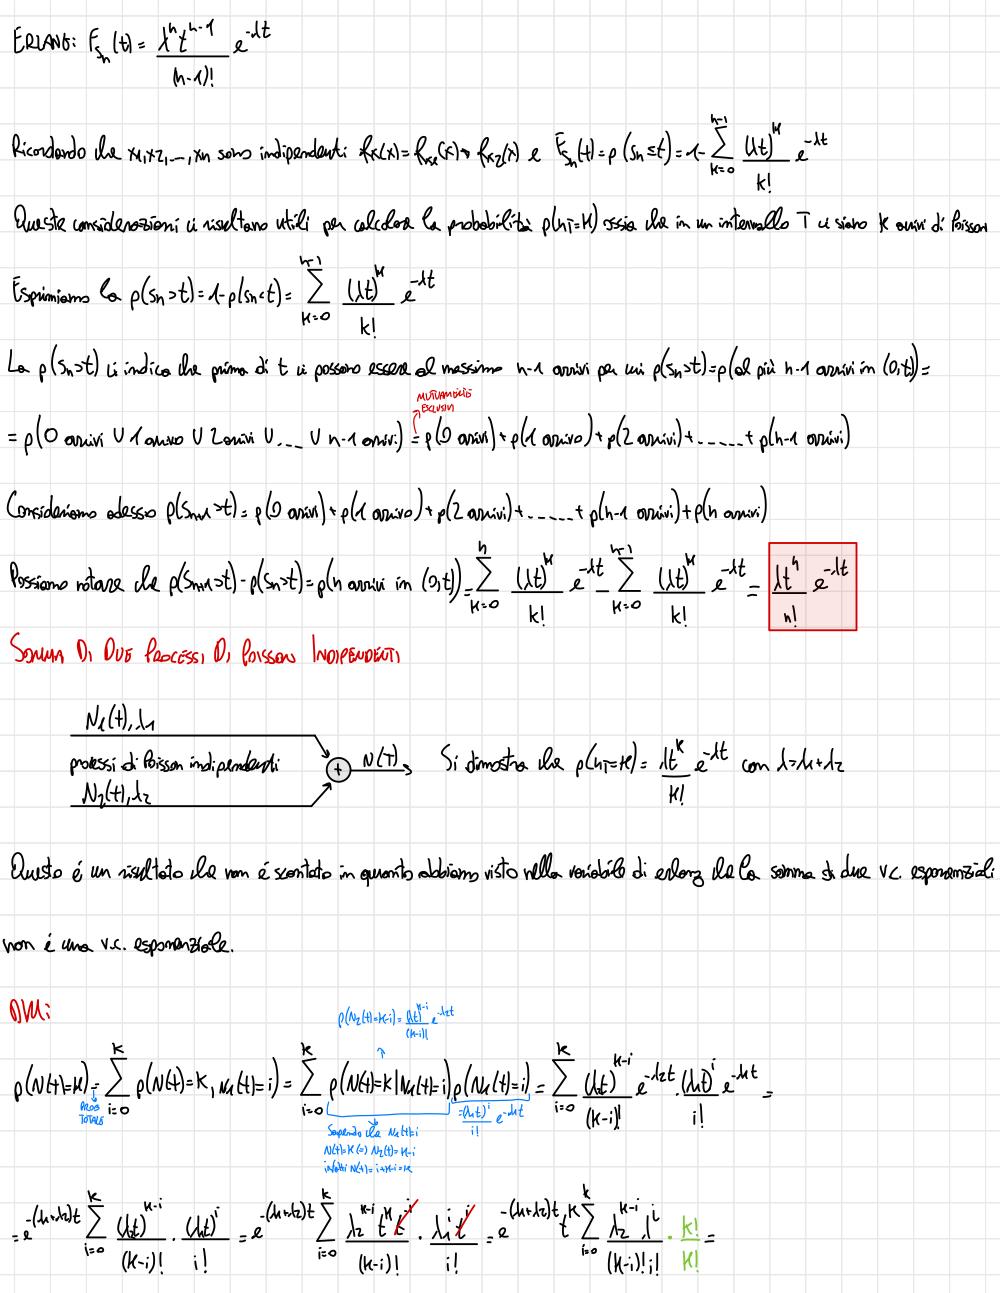 ERLANG: F_Sn(t) = λ^n t^(n-1) / (n-1)! e^-λt
Ricordando che x1, x2, ..., xn sono indipendenti fx(x) = fx1(x) * fx2(x) e F_Sn(t) = p(Sn ≤ t) = 1 - Σ_{k=0}^{n-1} (λt)^k / k! e^-λt
Queste considerazioni ci risultano utili per calcolare la probabilità p(nT=K) ossia che in un intervallo T ci siano K arrivi di Poisson
Esprimiamo la p(Sn>t) = 1-p(Sn<t) = Σ_{k=0}^{n-1} (λt)^k / k! e^-λt
La p(Sn>t) ci indica che prima di t ci possono essere al massimo n-1 arrivi per cui p(Sn>t) = p(al più n-1 arrivi in (0,t)) =
MUTUAMENTE ESCLUSIVI
= p(0 arrivi U 1 arrivo U 2 arrivi U .... U n-1 arrivi) = p(0 arrivi) + p(1 arrivo) + p(2 arrivi) + ...... + p(n-1 arrivi)
Consideriamo adesso p(Sn+1>t) = p(0 arrivi) + p(1 arrivo) + p(2 arrivi) + ...... + p(n-1 arrivi) + p(n arrivi)
Possiamo notare che p(Sn+1>t) - p(Sn>t) = p(n arrivi in (0,t)) = Σ_{k=0}^{n} (λt)^k / k! e^-λt - Σ_{k=0}^{n-1} (λt)^k / k! e^-λt = λt^n / n! e^-λt
SOMMA DI DUE PROCESSI DI POISSON INDIPENDENTI
N1(t), λ1
processi di Poisson indipendenti
N2(t), λ2
+ N(T)
Si dimostra che p(nT=K) = λt^K / K! e^-λt con λ=λ1+λ2
Questo é un risultato che non é scontato in quanto abbiamo visto nella variabile di erlang che la somma di due v.c. esponenziali
non é una v.c. esponenziale.
DIM:
p(N2(t)=K-i) = (λ2t)^(K-i) / (K-i)! e^-λ2t
p(N(t)=K) = Σ_{i=0}^{k} p(N(t)=K, N1(t)=i) = Σ_{i=0}^{k} p(N(t)=K|N1(t)=i) p(N1(t)=i) = Σ_{i=0}^{k} (λ2t)^(K-i) / (K-i)! e^-λ2t · (λ1t)^i / i! e^-λ1t =
PROB TOTALE
= (λ1t)^i / i! e^-λ1t
Sapendo che N1(t)=i
N(t)=K (=) N2(t)=K-i
infatti N(t)=i+K-i=K
= e^-(λ1+λ2)t Σ_{i=0}^{k} (λ2t)^(K-i) / (K-i)! · (λ1t)^i / i! = e^-(λ1+λ2)t Σ_{i=0}^{k} λ2^(K-i) t^K t^-i / (K-i)! · λ1^i t^i / i! = e^-(λ1+λ2)t t^K Σ_{i=0}^{k} λ2^(K-i) λ^i / (K-i)! i! · k! / K! =